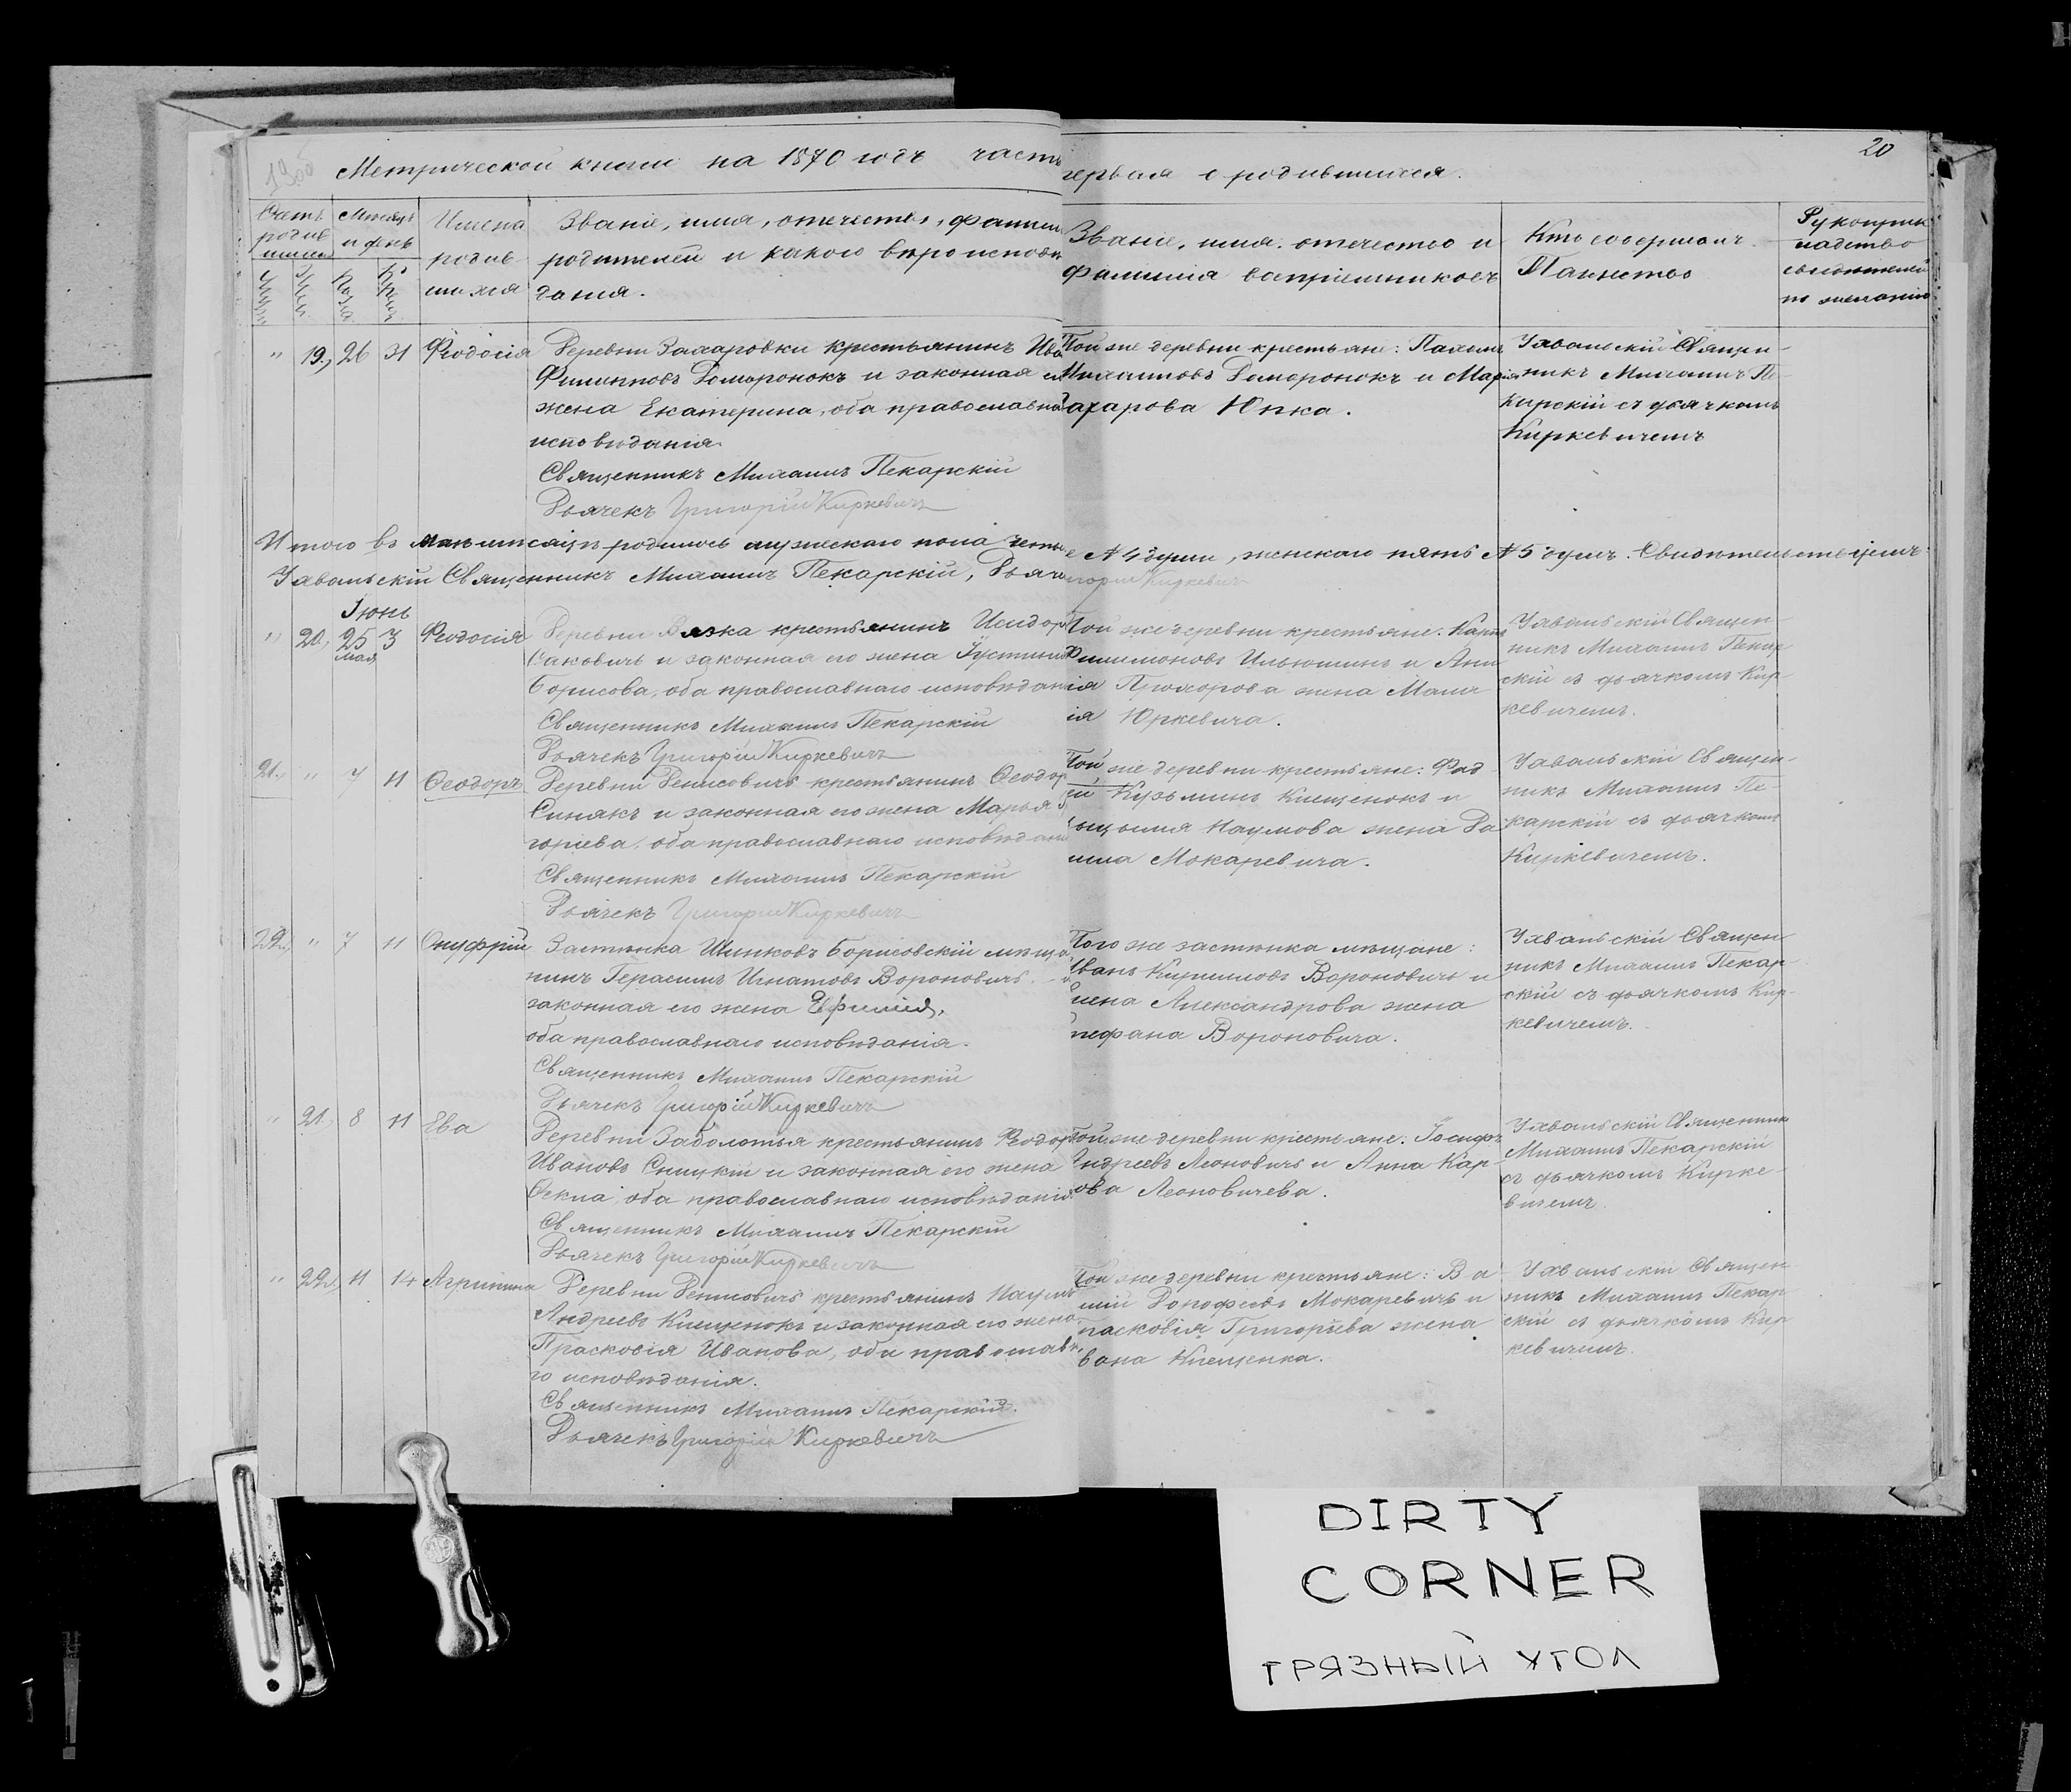 19об
20
Метрической книги на 1870 годъ часть
первая о родившихся.
Счетъ родив шихся
Мѣсяцъ и день
Имена родив шихся
Званіе, имя, отечество, фамил
родителей и какого вѣроисповѣ
данія.
Званіе, имя, отечество и
фамилія воспріемниковъ
Кто совершалъ
Таинство
Рукоприк
ладство
свидетелей
по желанію
" 19, 26 31 Ѳеодосія
Деревни Захаровки крестьянинъ Ива
Филиповъ Доморонокъ и законная
жена Екатерина, оба православна
исповѣданія.
Священникъ Михаилъ Пекарскій
Дьячекъ Григорій Киркевичъ
Той же деревни крестьяне: Пахом
Михаиловъ Доморонокъ и Марія
Захарова Юпка.
Ухвальскій Священ-
никъ Михаилъ Пе-
карскій съ дьячкомъ
Киркевичемъ
Итого въ маѣ мѣсяцѣ родилось мужескаго пола четы
е № 4 души, женскаго пять № 5 душъ.
Ухвальскій Священникъ Михаилъ Пекарскій, Дьяче
игорій Киркевичъ
Іюнь
" 20, 25 мая 3 Ѳеодосія
Деревни Вязка крестьянинъ Исидор
Саковичъ и законная его жена Іустинія
Борисова, оба православнаго исповѣданія
Священникъ Михаилъ Пекарскій
Дьячекъ Григорій Киркевичъ
Той же деревни крестьяне: Карпъ
Филимоновъ Ильюшинъ и
Прохорова жена
Юркевича.
Ухвальскій Священ-
никъ Михаилъ Пекар-
скій съ дьячкомъ Кир-
кевичемъ.
21, " 7 11 Ѳеодоръ
Деревни Денисовичъ крестьянинъ Ѳеодор
Синякъ и законная его жена Марья
горіева, оба православнаго исповѣдані
Священникъ Михаилъ Пекарскій
Дьячекъ Григорій Киркевичъ
Той же деревни крестьяне: Фад
ей Кузьминъ Клещенокъ и
Наумова жена Да
нила Мокаревича.
Ухвальскій Священ-
никъ Михаилъ Пе-
карскій съ дьячкомъ
Киркевичемъ.
22, " 7 11 Онуфрій
Застѣнка Шинковъ Борисовскій мѣща
нинъ Герасимъ Игнатовъ Вороновичъ
законная его жена Ефимія,
оба православнаго исповѣданія.
Священникъ Михаилъ Пекарскій
Дьячекъ Григорій Киркевичъ
Того же застѣнка мѣщане:
Иванъ Кириловъ Вороновичъ и
лена Александрова жена
тефана Вороновича.
Ухвальскій Священ-
никъ Михаилъ Пекар-
скій съ дьячкомъ Кир-
кевичемъ.
" 21, 8 11 Ева
Деревни Заболотья крестьянинъ Ѳеодоръ
Ивановъ Сницкій и законная его жена
Ѳекла, оба православнаго исповѣданія.
Священникъ Михаилъ Пекарскій
Дьячекъ Григорій Киркевичъ
Той же деревни крестьяне: Іосифъ
Андреевъ Леоновичъ и Анна Кар-
ова Леоновичева.
Ухвальскій Священникъ
Михаилъ Пекарскій
съ дьячкомъ Кирке-
вичемъ
" 22, 11 14 Агрипина
Деревни Денисовичъ крестьянинъ Наумъ
Андреевъ Клещенокъ и законная его жена
Прасковія Иванова, оба православна
го исповѣданія.
Священникъ Михаилъ Пекарскій.
Дьячекъ Григорій Киркевичъ
Той же деревни крестьяне: Ва
илій Дорофеевъ Мокаревичъ и
расковія Григорьева жена
вана Клещенка.
Ухвальскій Священ-
никъ Михаилъ Пекар-
скій съ дьячкомъ Кир-
кевичемъ.
DIRTY
CORNER
ГРЯЗНЫЙ УГОЛ